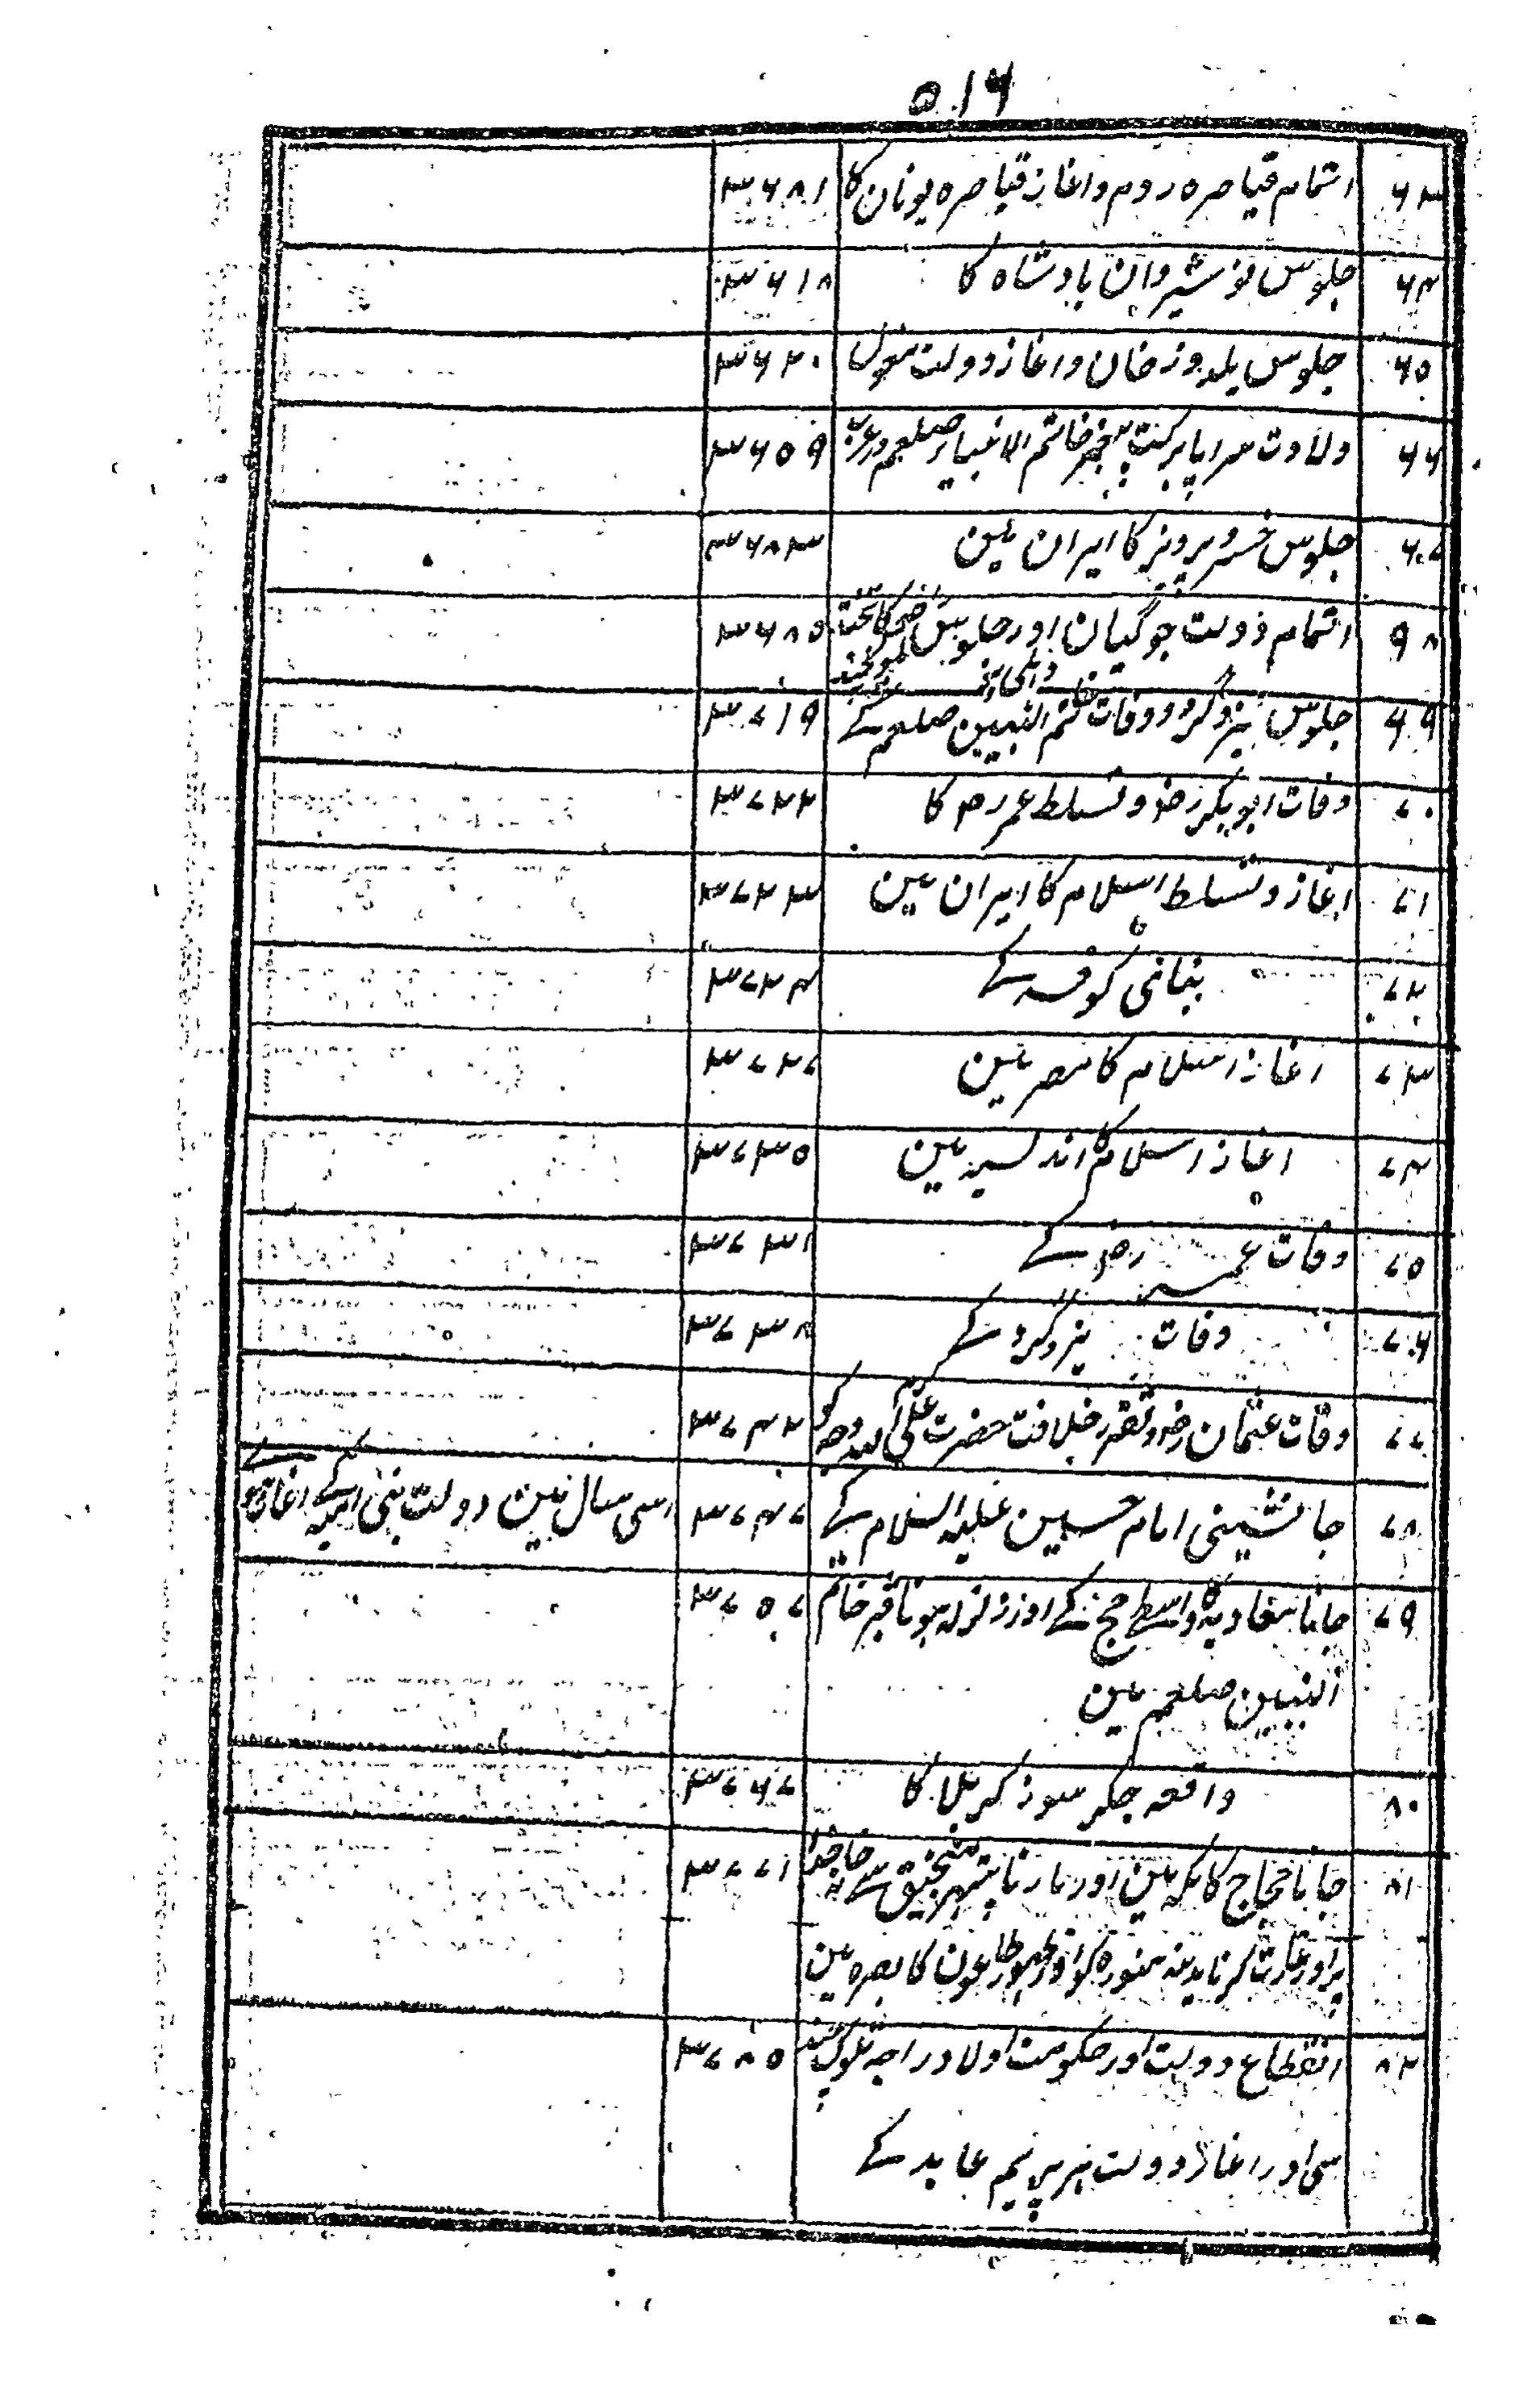 ۵۱۶
۶۳ اتمام قیاصرہ روم و اغاز قیاصرہ یونان کا ۳۶۸۱
۶۴ جلوس نوشیروان بادشاہ کا ۳۶۱۸
۶۵ جلوس یلدوز خان و اغاز دولت مغول ۳۶۲۰
۶۶ ولادت سراپا برکت پیغمبر خاتم الانبیا صلعم در عرب ۳۶۵۹
۶۷ جلوس خسرو پرویز کا ایران مین ۳۶۸۳
۹۸ اتمام دولت جوگیان اور جلوس کا تخت ۳۶۸۵
دہلی
۶۹ جلوس یزدگرد و وفات خاتم النبیین صلعم کے ۳۷۱۹
۷۰ وفات ابوبکر رضہ و تسلط عمر رضہ کا ۳۷۲۲
۷۱ اغاز و تسلط اسلام کا ایران مین ۳۷۲۳
۷۲ بنانی کوفہ کے ۳۷۲۴
۷۳ اغاز اسلام کا مصر مین ۳۷۲۷
۷۴ اغاز اسلام کا اندلسیہ مین ۳۷۳۵
۷۵ وفات عمر رضہ کے ۳۷۳۱
۷۶ وفات یزدگرد کے ۳۷۳۸
۷۷ وفات عثمان رضہ و تقرر خلافت حضرت علی کرم اللہ وجہ کو ۳۷۴۲
۷۸ جانشینی امام حسین علیہ السلام کے ۳۷۴۷ اسی سال مین دولت بنی امیہ کے اغاز ہوئے
۷۹ جانا معاویہ کا واسطے حج کے اور زلزلہ ہونا قبر خاتم ۳۷۵۷
النبیین صلعم مین
۸۰ واقعہ جگر سوز کربلا کا ۳۷۶۷
۸۱ جانا حجاج کا مکہ مین اور مارنا پتہر منجنیق سے خانہ خدا ۳۷۷۱
پر اور غارت کرنا مدینہ منورہ کو اور ظہور طاعون کا بصرہ مین
۸۲ انقطاع دولت اور حکومت اولاد راجہ تلوک چند ۳۷۸۵
سی اور اغاز دولت ہر پریم عابد کے